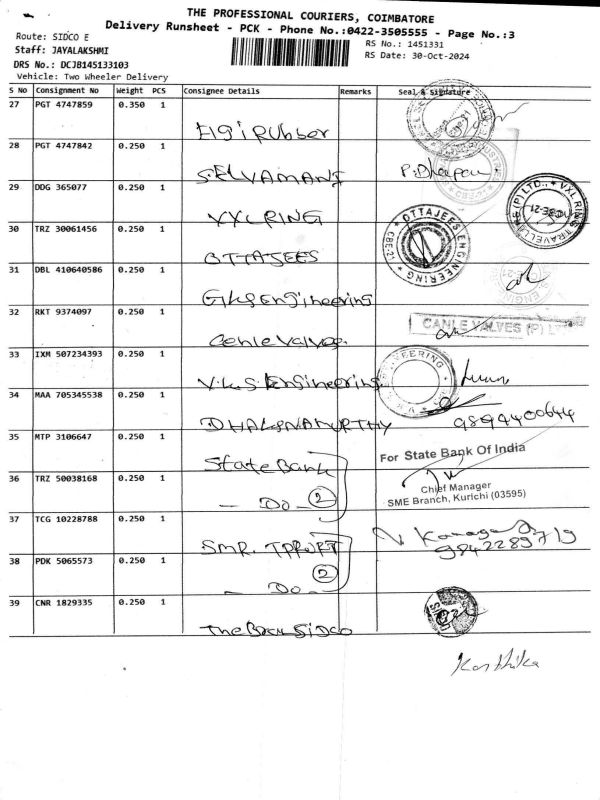 THE PROFESSIONAL COURIERS, COIMBATORE
Delivery Runsheet - PCK - Phone No.:0422-3505555 - Page No.:3
Route: SIDCO E
RS No.: 1451331
Staff: JAYALAKSHMI
RS Date: 30-Oct-2024
DRS No.: DCJB145133103
Vehicle: Two Wheeler Delivery
S No Consignment No Weight PCS Consignee Details Remarks Seal & Signature
27 PGT 4747859 0.350 1
Elgi Rubber
28 PGT 4747842 0.250 1
SELVAMANI
29 DDG 365077 0.250 1
VXL RING
VXL RING TRAVELL
30 TRZ 30061456 0.250 1
OTTAJEES
OTTAJEES ENGINEERING * CBE-21 *
31 DBL 410640586 0.250 1
Engineering
32 RKT 9374097 0.250 1
Canle Valves.
CANLE VALVES (P) LT
33 IXM 507234393 0.250 1
V.K.S. Engineering
34 MAA 705345538 0.250 1
9894400644
35 MTP 3106647 0.250 1
State Bank
For State Bank Of India
36 TRZ 50038168 0.250 1
- Do - 2
Chief Manager
SME Branch, Kurichi (03595)
37 TCG 10228788 0.250 1
SMR.
9842289719
38 PDK 5065573 0.250 1
- Do - 2
39 CNR 1829335 0.250 1
The SIDCO
Karthika